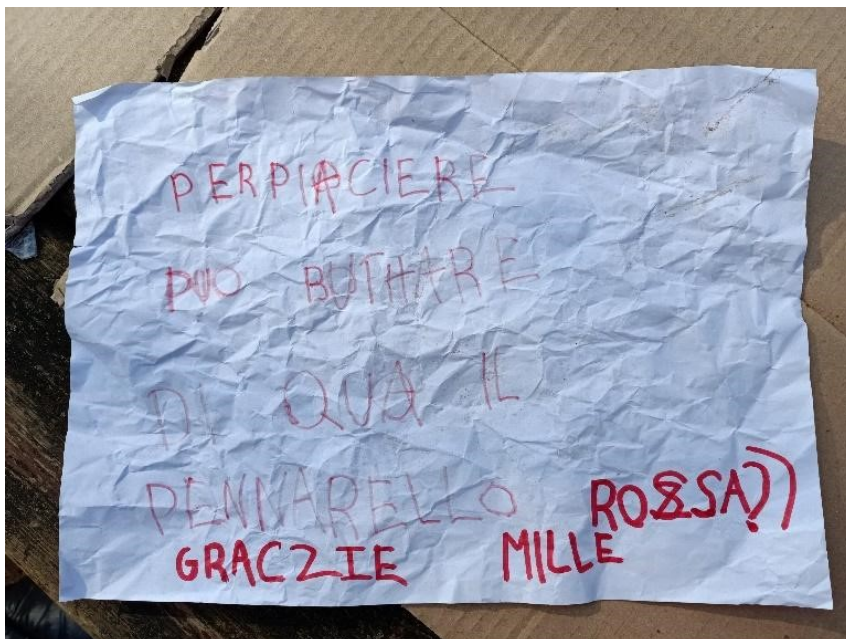 PERPIACIERE
PUO BUTHARE
DI QUA IL
PENNARELLO ROSSA?))
GRACZIE MILLE